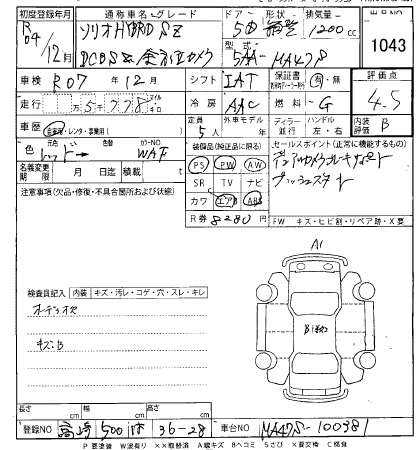 初度登録年月 通称車名・グレード ドア・形状・排気量
R04/12月 ソリオHYBRID SZ 5D 1200cc
型式 1043
DCBS& 全方位カメラ 5AA-MA47S
車検 R07年12月 シフト IAT 保証書 有・無 評価点
4.5
走行 5778 冷房 AAC 燃料 G
内装評価 B
車歴 自家用・レンタ・事業用( ) 定員 5人 外車モデル 年 ディーラー 並行 ハンドル 左・右
色 元色 レッド→ 色替 カラーNO WAF
装備品(純正品に限る) セールスポイント(正常に機能するもの)
名義変更期限 月 日迄 積載 t
PS PW AW
プッシュスタート
注意事項(欠品・修復・不具合箇所および状態)
SR TV ナビ
カワ エアB ABS
R券 8280円 FW キズ・ヒビ割・リペア跡・X要
A1
検査員記入 内装 キズ・汚レ・コゲ・穴・スレ・キレ
キズB
長さ cm 幅 cm 高さ cm
登録NO 高崎 500 は 36-28 車台NO MA47S-100381
P 要塗装 W波有り ××取替済 A線キズ Bヘコミ Sさび ×要交換 C腐食